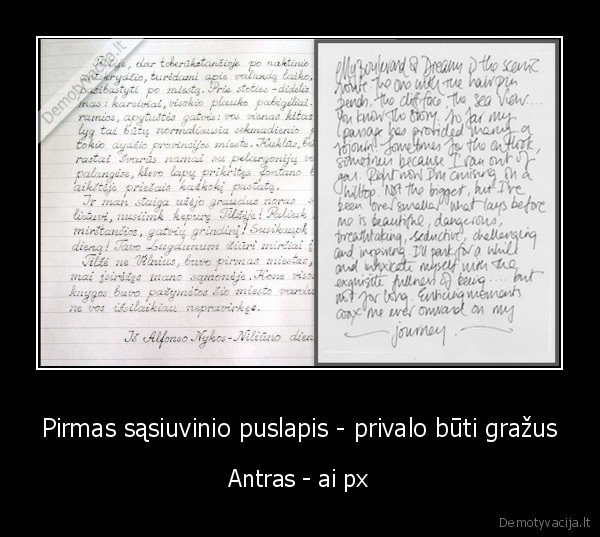 Demotyvacija.lt
Tilžėje, dar teberūkstančioje po naktinio
antskrydžio, turėdami apie valandą laiko,
pasibastyti po miestą. Prie stoties - didelis
mas: kareiviai, visokio plauko pabėgėliai.
ramios, apytuštės gatvės: vos vienas kitas
lyg tai būtų normaliausia sekmadienio
tokio dydžio provincijos mieste. Kuklūs, be
rastai švarūs namai su pelargonijų va
palangėse, klevo lapų prikritęs fontano b
aikštėje priešais kažkokį pastatą.
Ir man staiga užėjo graudus noras
lietuvi, nusiimk kepurę Tilžėje! Palink
mirštančios, gatvių grindinį! Susikaupk
dieną! Tavo Lugdunum žiūri mirčiai į
Tilžė ne Vilnius, buvo pirmas miestas,
mai įsirėžęs mano sąmonėje. Kone visos
knygos buvo pažymėtos šio miesto vardu
ne vos išsilaikiau nepravirkęs.
Iš Alfonso Nykos-Niliūno dien
My Boulevard of Dreams is the scenic
route. the one with the hairpin
bends. the cliff face, the sea view....
You know the story. So far my
passage has provided many a
sojourn. Sometimes for the outlook,
sometimes because I ran out of
gas. Right now I'm cruising on a
hilltop. Not the biggest, but I've
been over smaller. What lays before
me is beautiful, dangerous,
breathtaking, seductive, challenging
and inspiring. I'll park for a while
and intoxicate myself with the
exquisite fullness of being..... but
not for long. Enticing moments
coax me ever onward on my
journey.
Pirmas sąsiuvinio puslapis - privalo būti gražus
Antras - ai px
Demotyvacija.lt